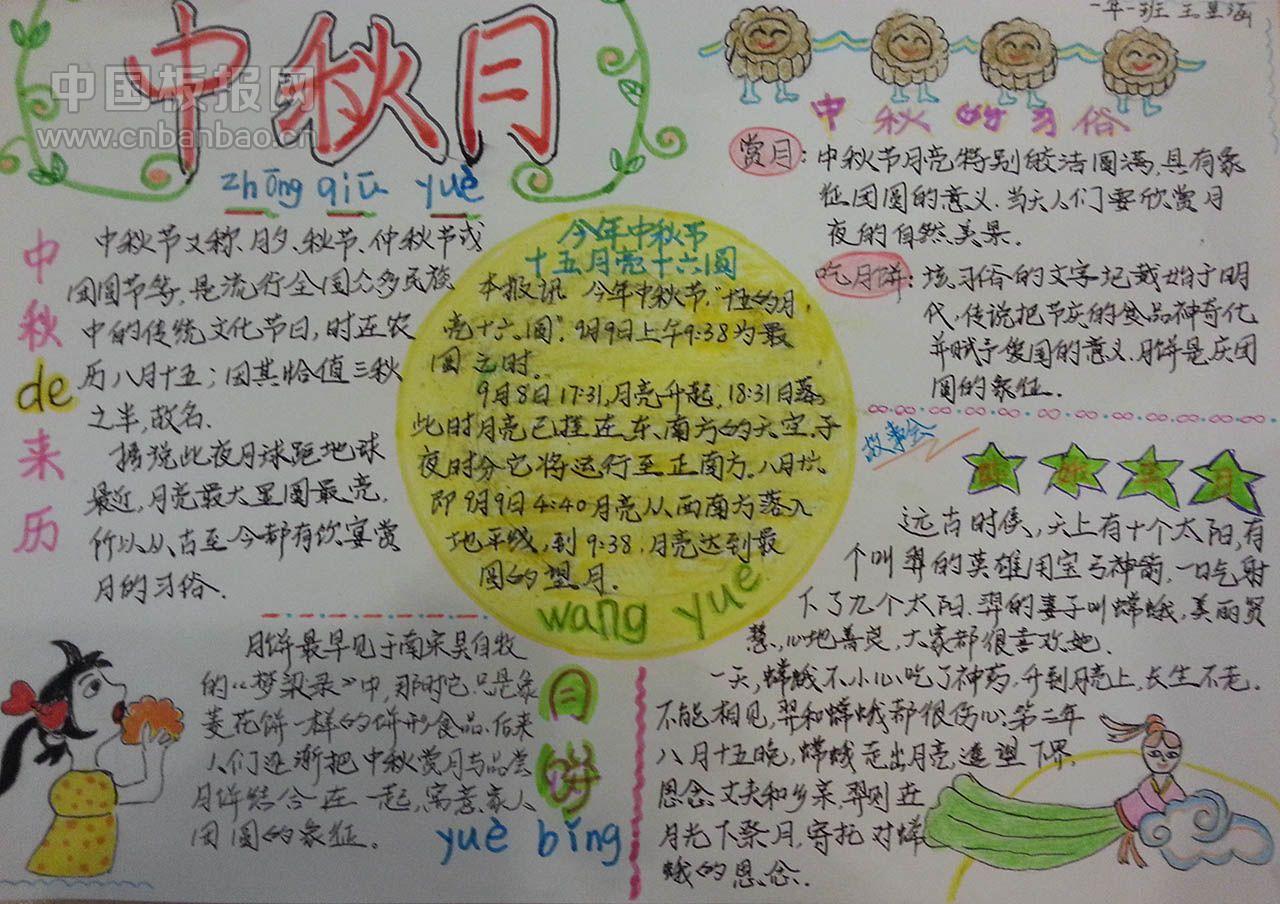 中秋月
中国板报网
www.cnbanbao.cn
zhōng qiū yuè
中秋de来历
中秋节又称月夕、秋节、仲秋节或
团圆节等,是流行全国众多民族
中的传统文化节日,时在农
历八月十五;因其恰值三秋
之半,故名.
据说此夜月球距地球
最近,月亮最大星圆最亮,
所以从古至今都有饮宴赏
月的习俗.
今年中秋节
十五月亮十六圆
本报讯 今年中秋节,"十五的月
亮十六圆".9月9日上午9:38为最
圆之时.
9月8日17:31,月亮升起,18:31日落,
此时月亮已挂在东南方的天空,子
夜时分它将运行至正南方.八月十六
即9月9日4:40月亮从西南方落入
地平线,到9:38.月亮达到最
圆的望月.
wang yue
月饼最早见于南宋吴自牧
的《梦梁录》中,那时它只是象
菱花饼一样的饼形食品.后来
人们逐渐把中秋赏月与品尝
月饼结合在一起,寓意家人
团圆的象征.
月饼
yuè bǐng
一年一班 王
中秋的习俗
赏月:中秋节月亮特别皎洁圆满,具有象
征团圆的意义.当天人们要欣赏月
夜的自然美景.
吃月饼:该习俗的文字记载始于明
代,传说把节庆的食品神奇化
并赋予爱国的意义.月饼是庆团
圆的象征.
故事会
月
远古时候,天上有十个太阳,有
个叫羿的英雄用宝弓神箭,一口气射
下了九个太阳.羿的妻子叫嫦娥,美丽贤
慧,心地善良,大家都很喜欢她.
一天,嫦娥不小心吃了神药,升到月亮上,长生不老.
不能相见,羿和嫦娥都很伤心.第二年
八月十五晚,嫦娥走出月亮,遥望下界,
思念丈夫和乡亲.羿则在
月光下祭月,寄托对嫦
娥的思念.